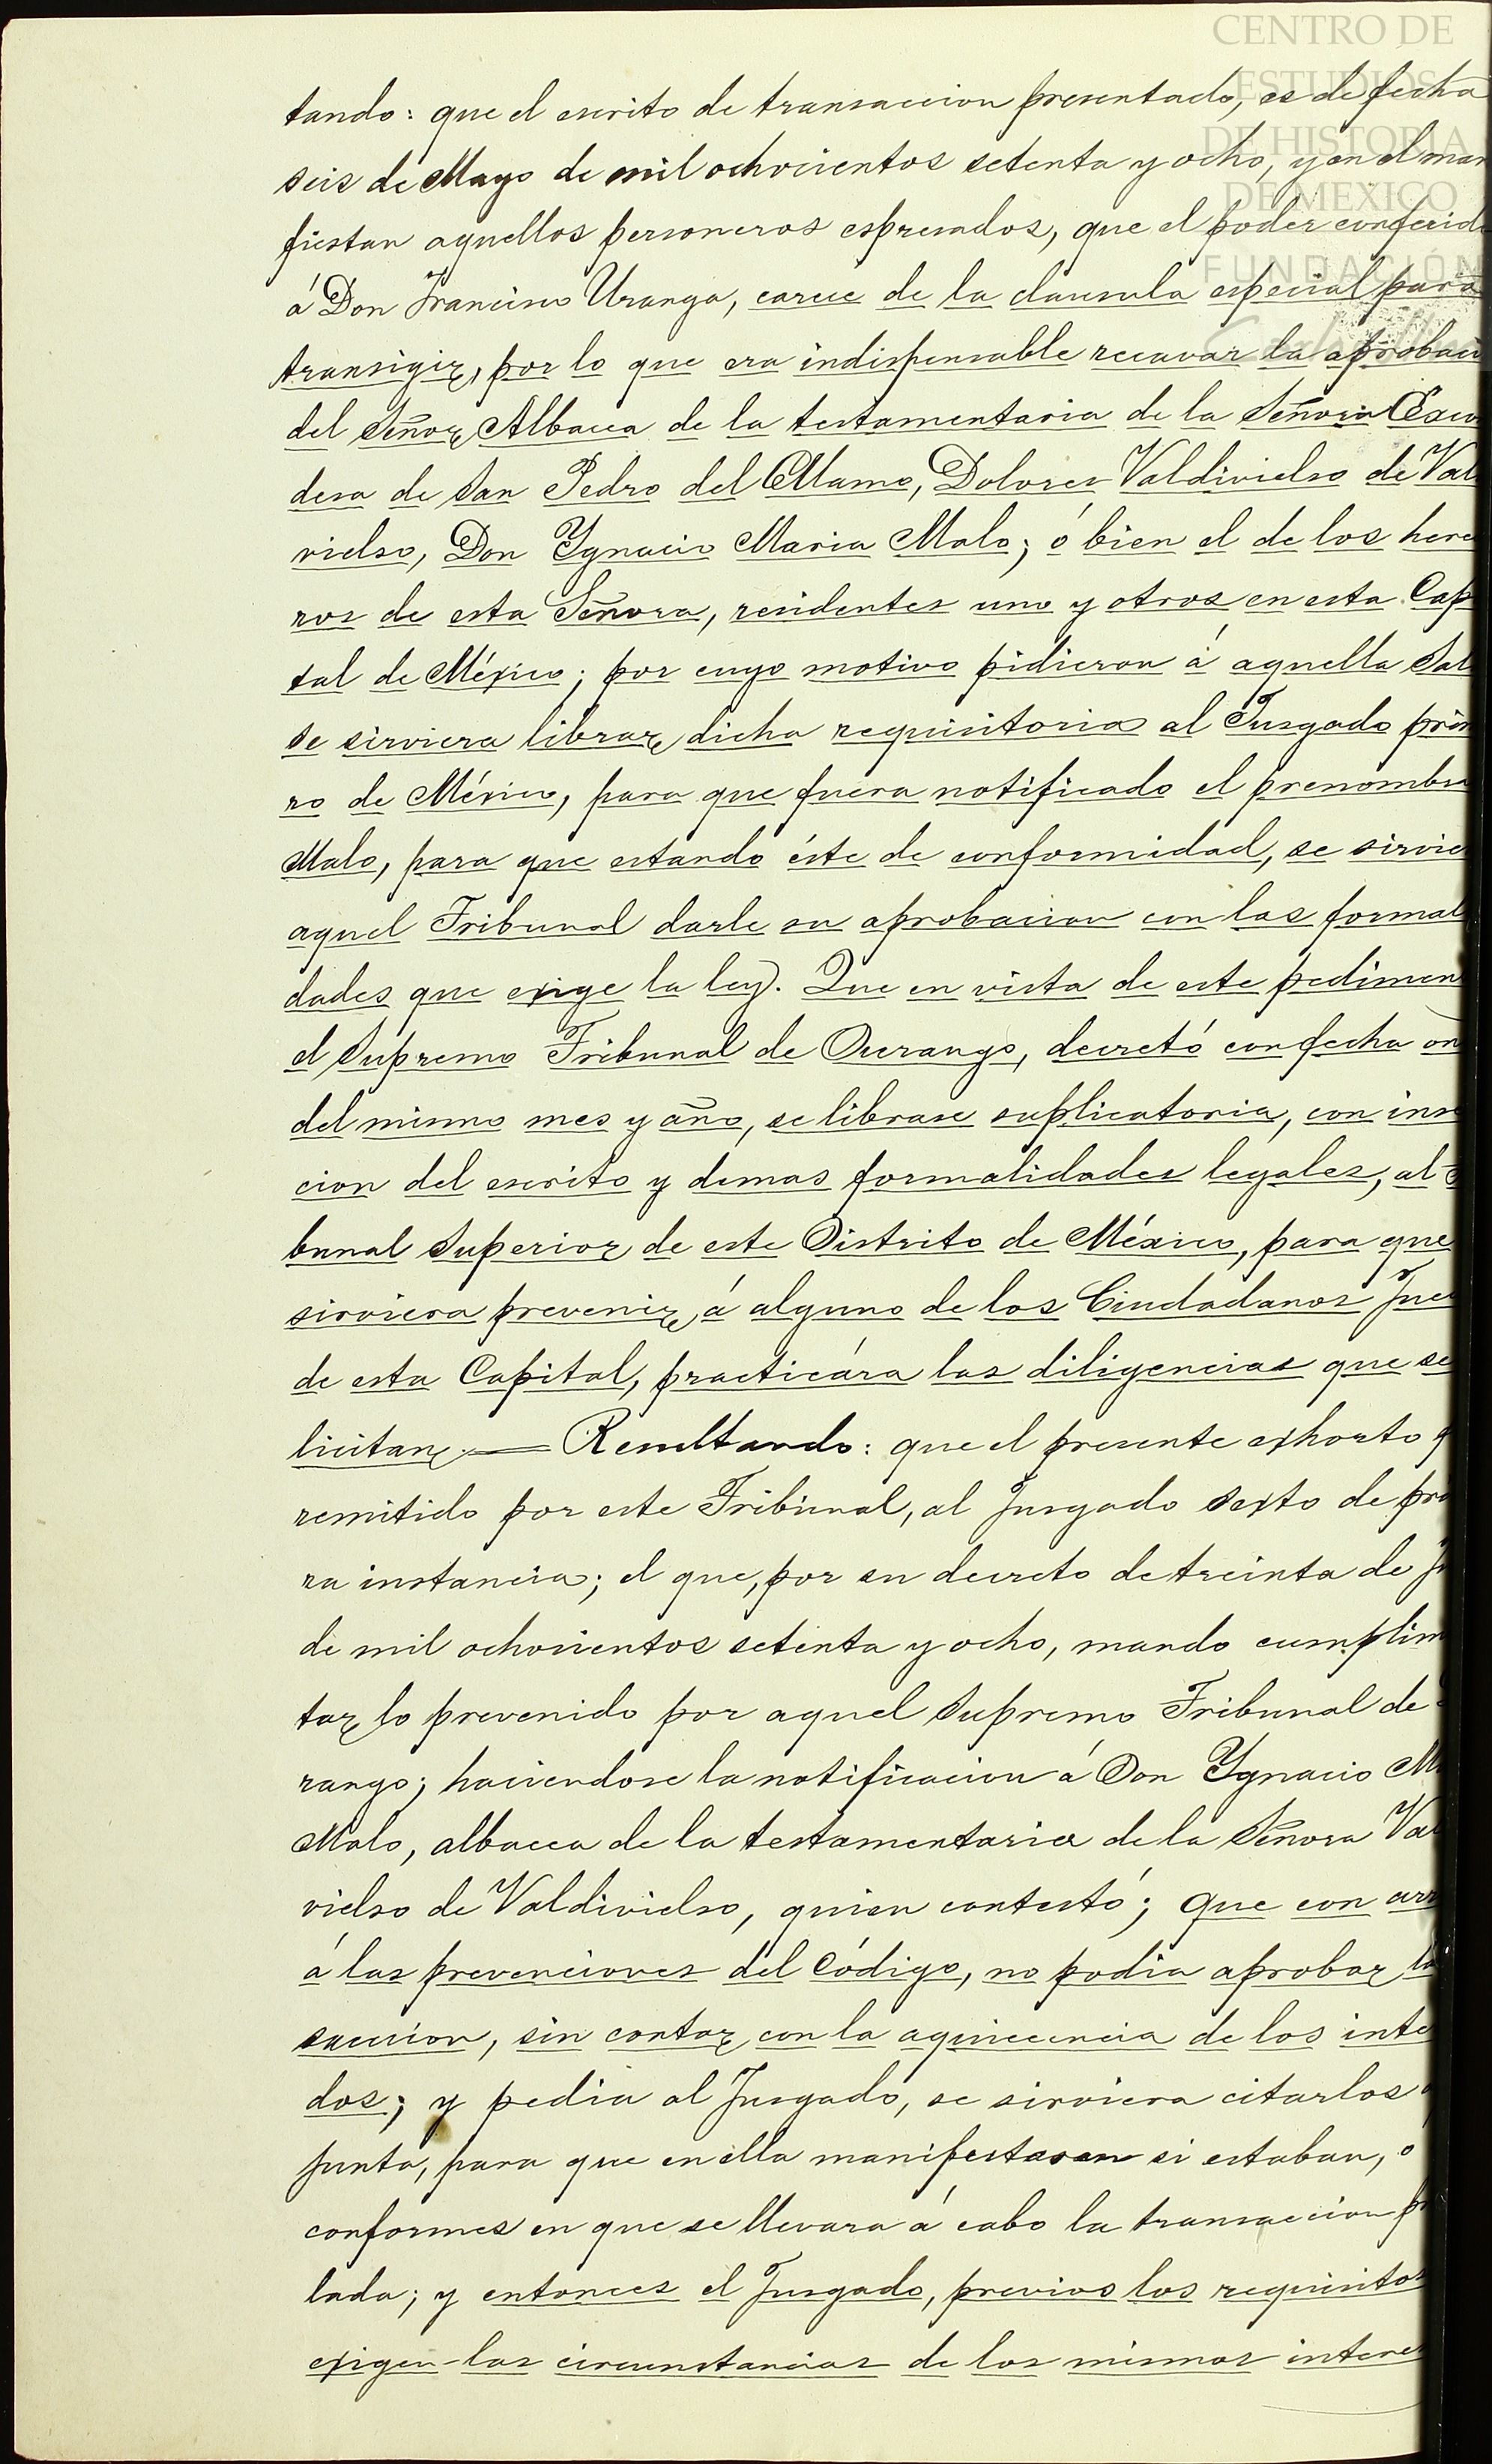 CENTRO DE
ESTUDIOS
DE HISTORIA
DE MEXICO
FUNDACIÓN
tando: que el escrito de transaccion presentado, es de fecha
seis de Mayo de mil ochocientos setenta y ocho, y en el man
fiestan aquellos personeros espresados, que el poder conferid
á Don Francisco Uranga, carece de la clausula especial para
transigir, por lo que era indispensable recavar la aprobaci
del Señor Albacea de la testamentaria de la Señora Excon
desa de San Pedro del Álamo, Dolores Valdivielso de Val
vielso, Don Ygnacio Maria Malo; ó bien el de los here
ros de esta Señora, residentes uno y otros en esta Cap
tal de México; por cuyo motivo pidieron á aquella Sal
se sirviera librar dicha requisitoria al Jusgado prim
ro de México, para que fuera notificado el prenombra
Malo, para que estando éste de conformidad, se sirvie
aquel Tribunal darle su aprobacion con las formal
dades que exige la ley. Que en vista de este pedimen
el Supremo Tribunal de Durango, decretó con fecha on
del mismo mes y año, se librase suplicatoria, con inse
cion del escrito y demas formalidades legales, al
bunal Superior de este Distrito de México, para que
sirviera prevenir á alguno de los Ciudadanos Juec
de esta Capital, practicára las diligencias que se
licitan. Resultando: que el presente exhorto
remitido por este Tribunal, al Jusgado sexto de pri
ra instancia; el que, por su decreto de treinta de Ju
de mil ochocientos setenta y ocho, mando cumplim
tar lo prevenido por aquel Supremo Tribunal de
rango; haciendose la notificacion á Don Ygnacio M
Malo, albacea de la testamentaria de la Señora Val
vielso de Valdivielso, quien contestó; que con arr
á las prevenciones del Código, no podia aprobar la
saccion, sin contar con la aquiecencia de los inte
dos; y pedia al Jusgado, se sirviera citarlos
junta, para que en ella manifestasen si estaban, o
conformes en que se llevara á cabo la transaccion
lada; y entonces el Jusgado, previos los requisitos
exigen las circunstancias de los mismos intere